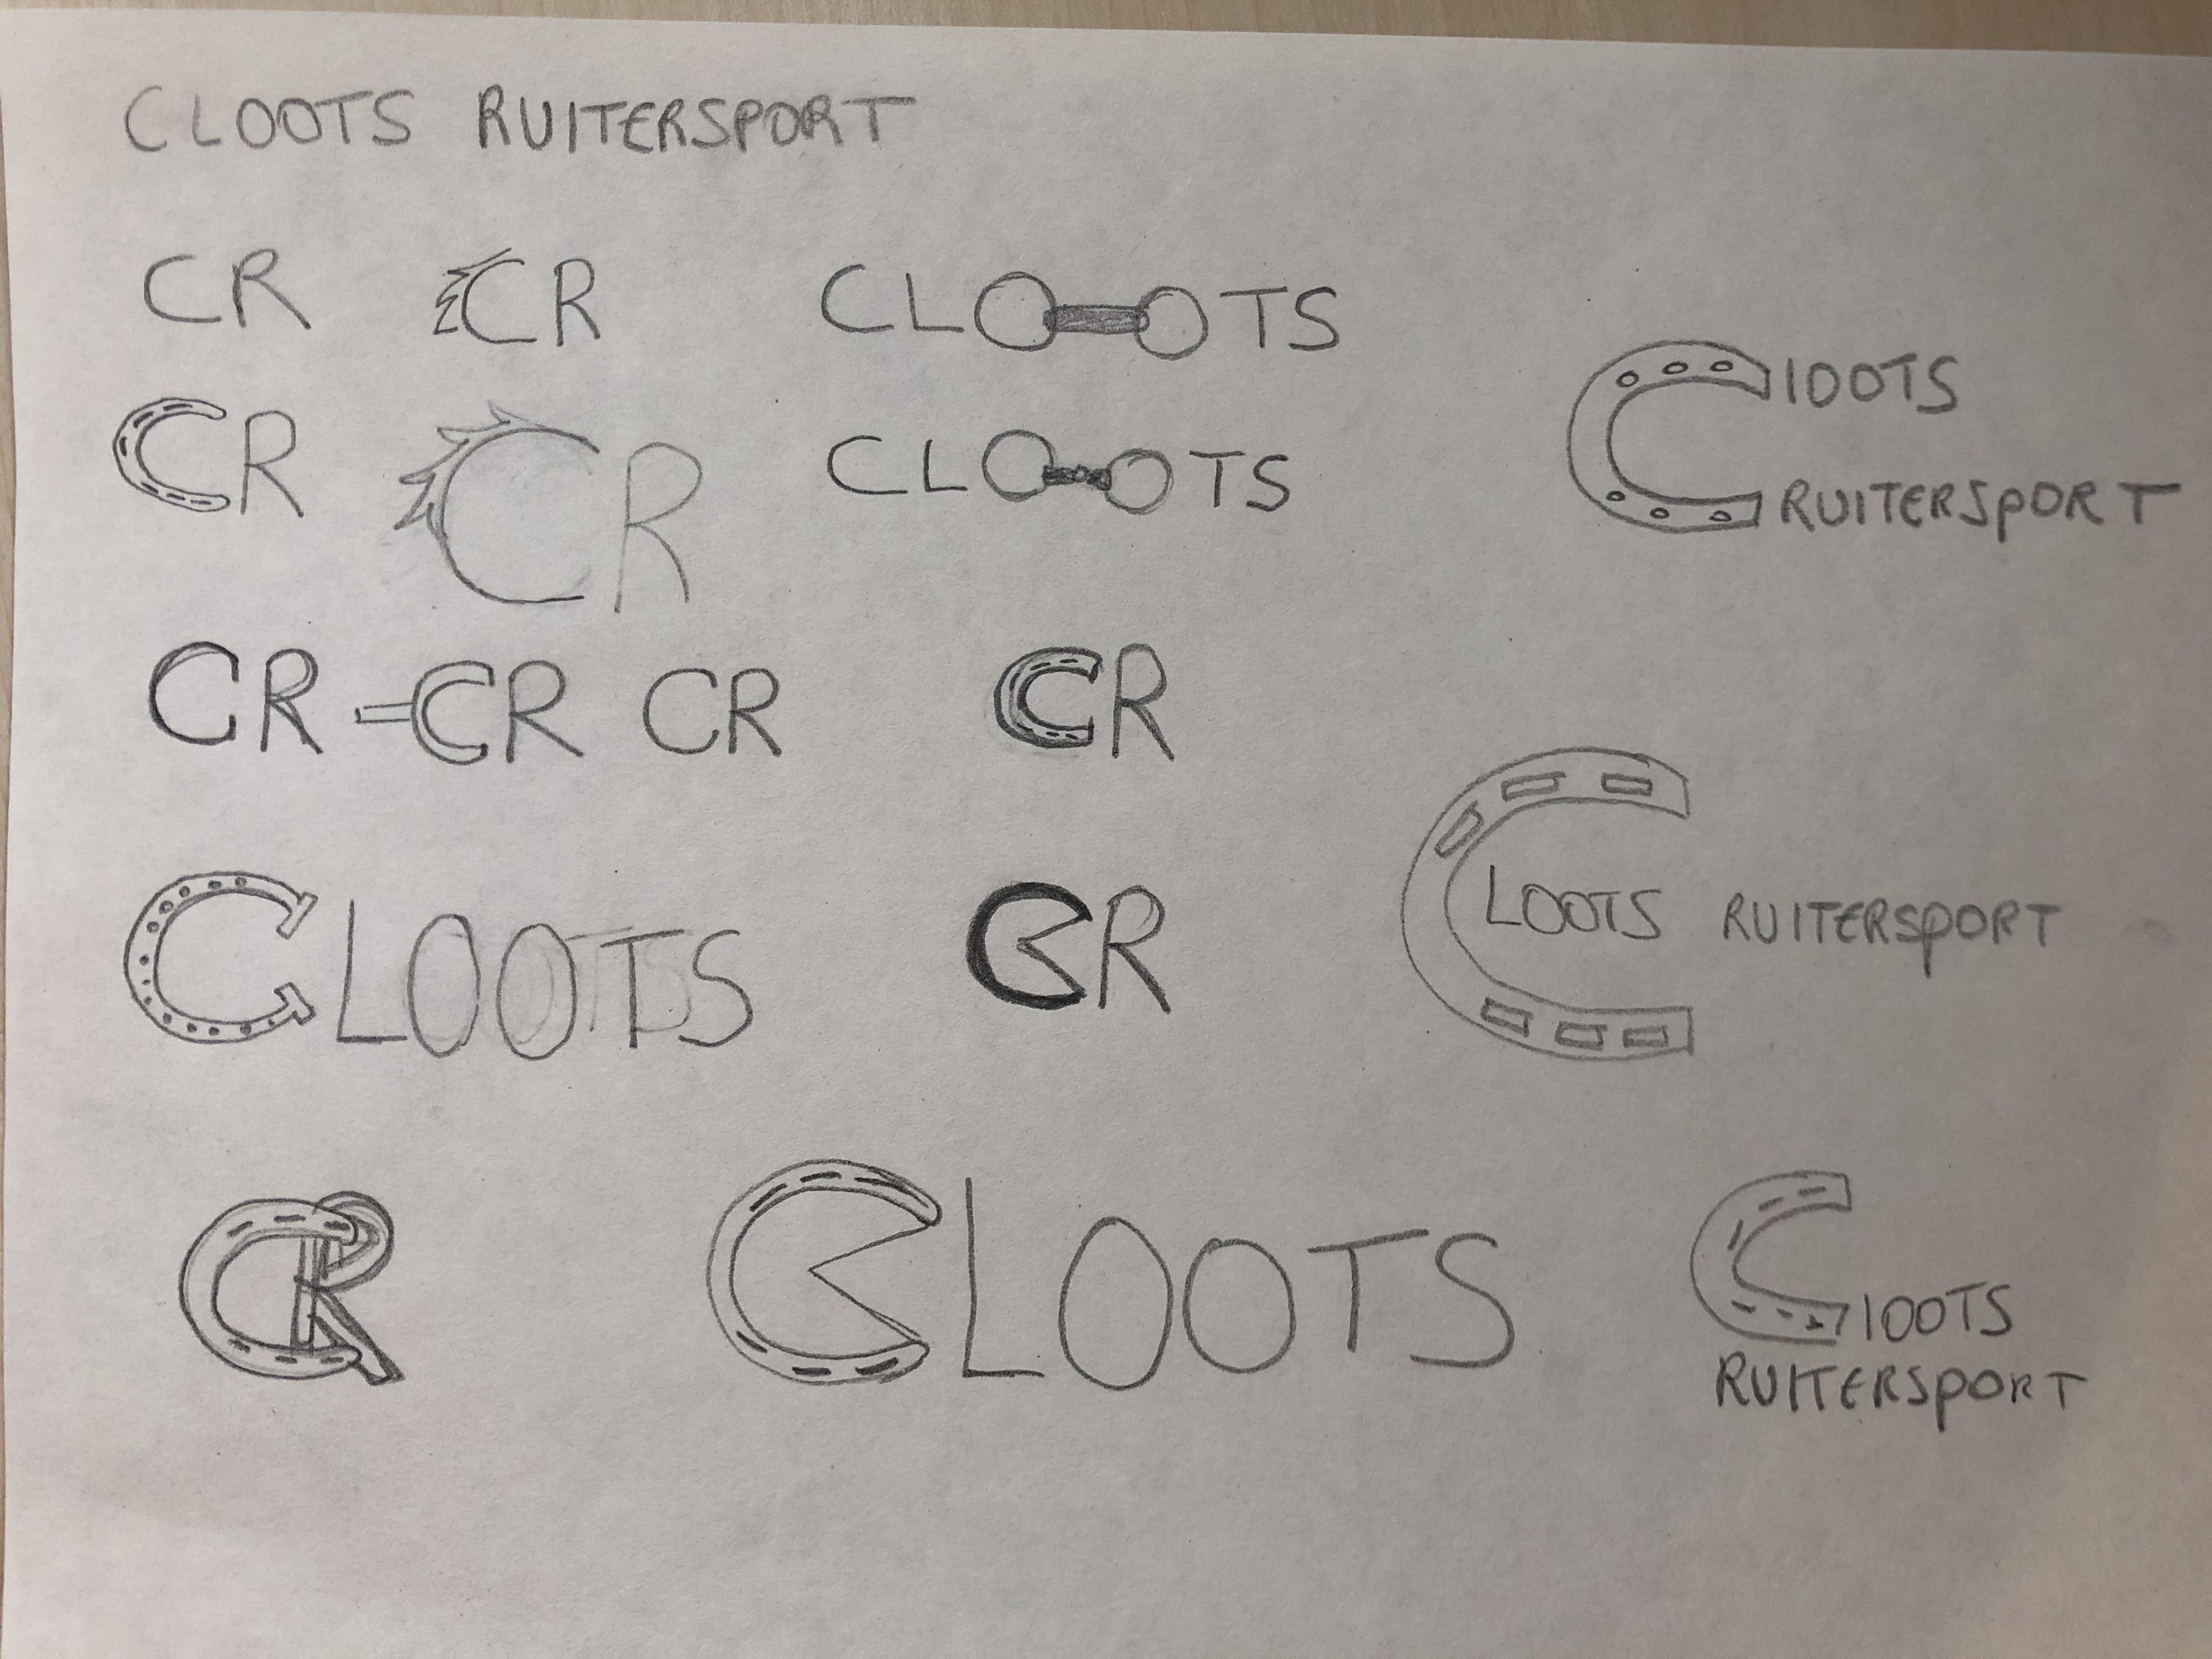 CLOOTS RUITERSPORT
CR
CR
CLOOTS
CR
CR
CLOOTS
ClOOTS
RUITERSpORT
CR
CR
CR
CR
CLOOTS
CR
CLOOTS RUITERSpORT
CR
CLOOTS
ClOOTS
RUITERSpORT